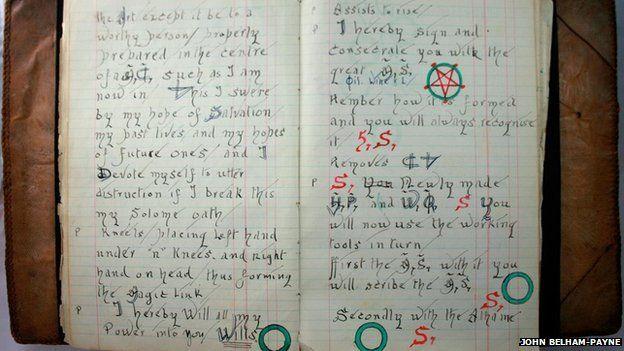 the Art except it be to a
worthy person, properly
prepared in the centre
of a such as I am
now in This I swere
by my hope of Salvation
my past lives and my hopes
of future ones, and I
Devote myself to utter
distruction if I break this
my Solome oath
P Kneels, placing left hand
under "n" Knees and right
hand on head thus forming
the Magic Link
P I hereby Will all my
Power into You Wills
P Assists to rise,
P I hereby sign and
consecrate you with the
great
Rember how it is formed
and you will always recognise
it K, S,
Removes
P S, You Newly made
and S You
will now use the working
tools in turn
ffirst the with it you
will scribe the
S,
Secondly with the Athame
S,
JOHN BELHAM-PAYNE